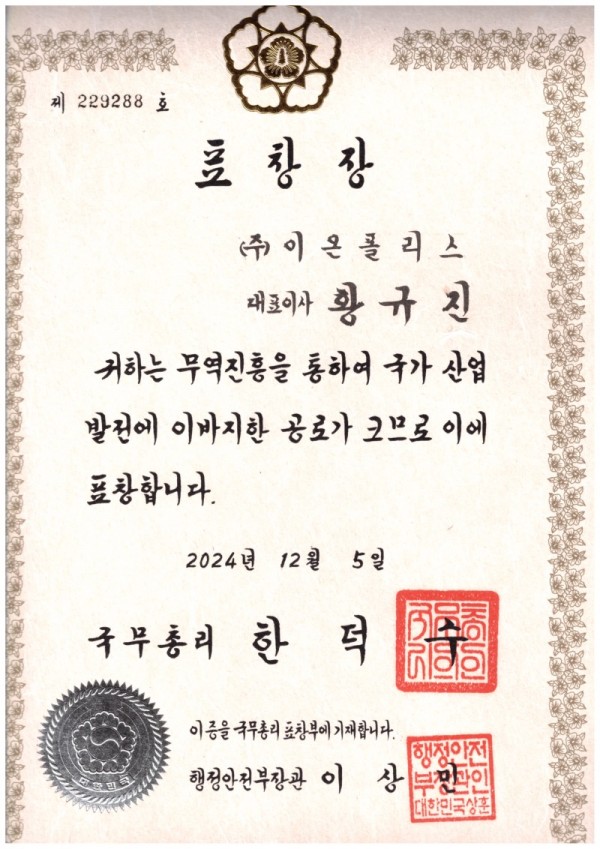 제 229288 호
표 창 장
(주) 이 온 폴 리 스
대표이사 황 규 진
귀하는 무역진흥을 통하여 국가 산업
발전에 이바지한 공로가 크므로 이에
표창합니다.
2024년 12월 5일
국무총리 한 덕 수
이 증을 국무총리 표창부에 기재합니다.
행정안전부장관 이 상 민
행정안전
부장관인
대한민국상훈
대한민국